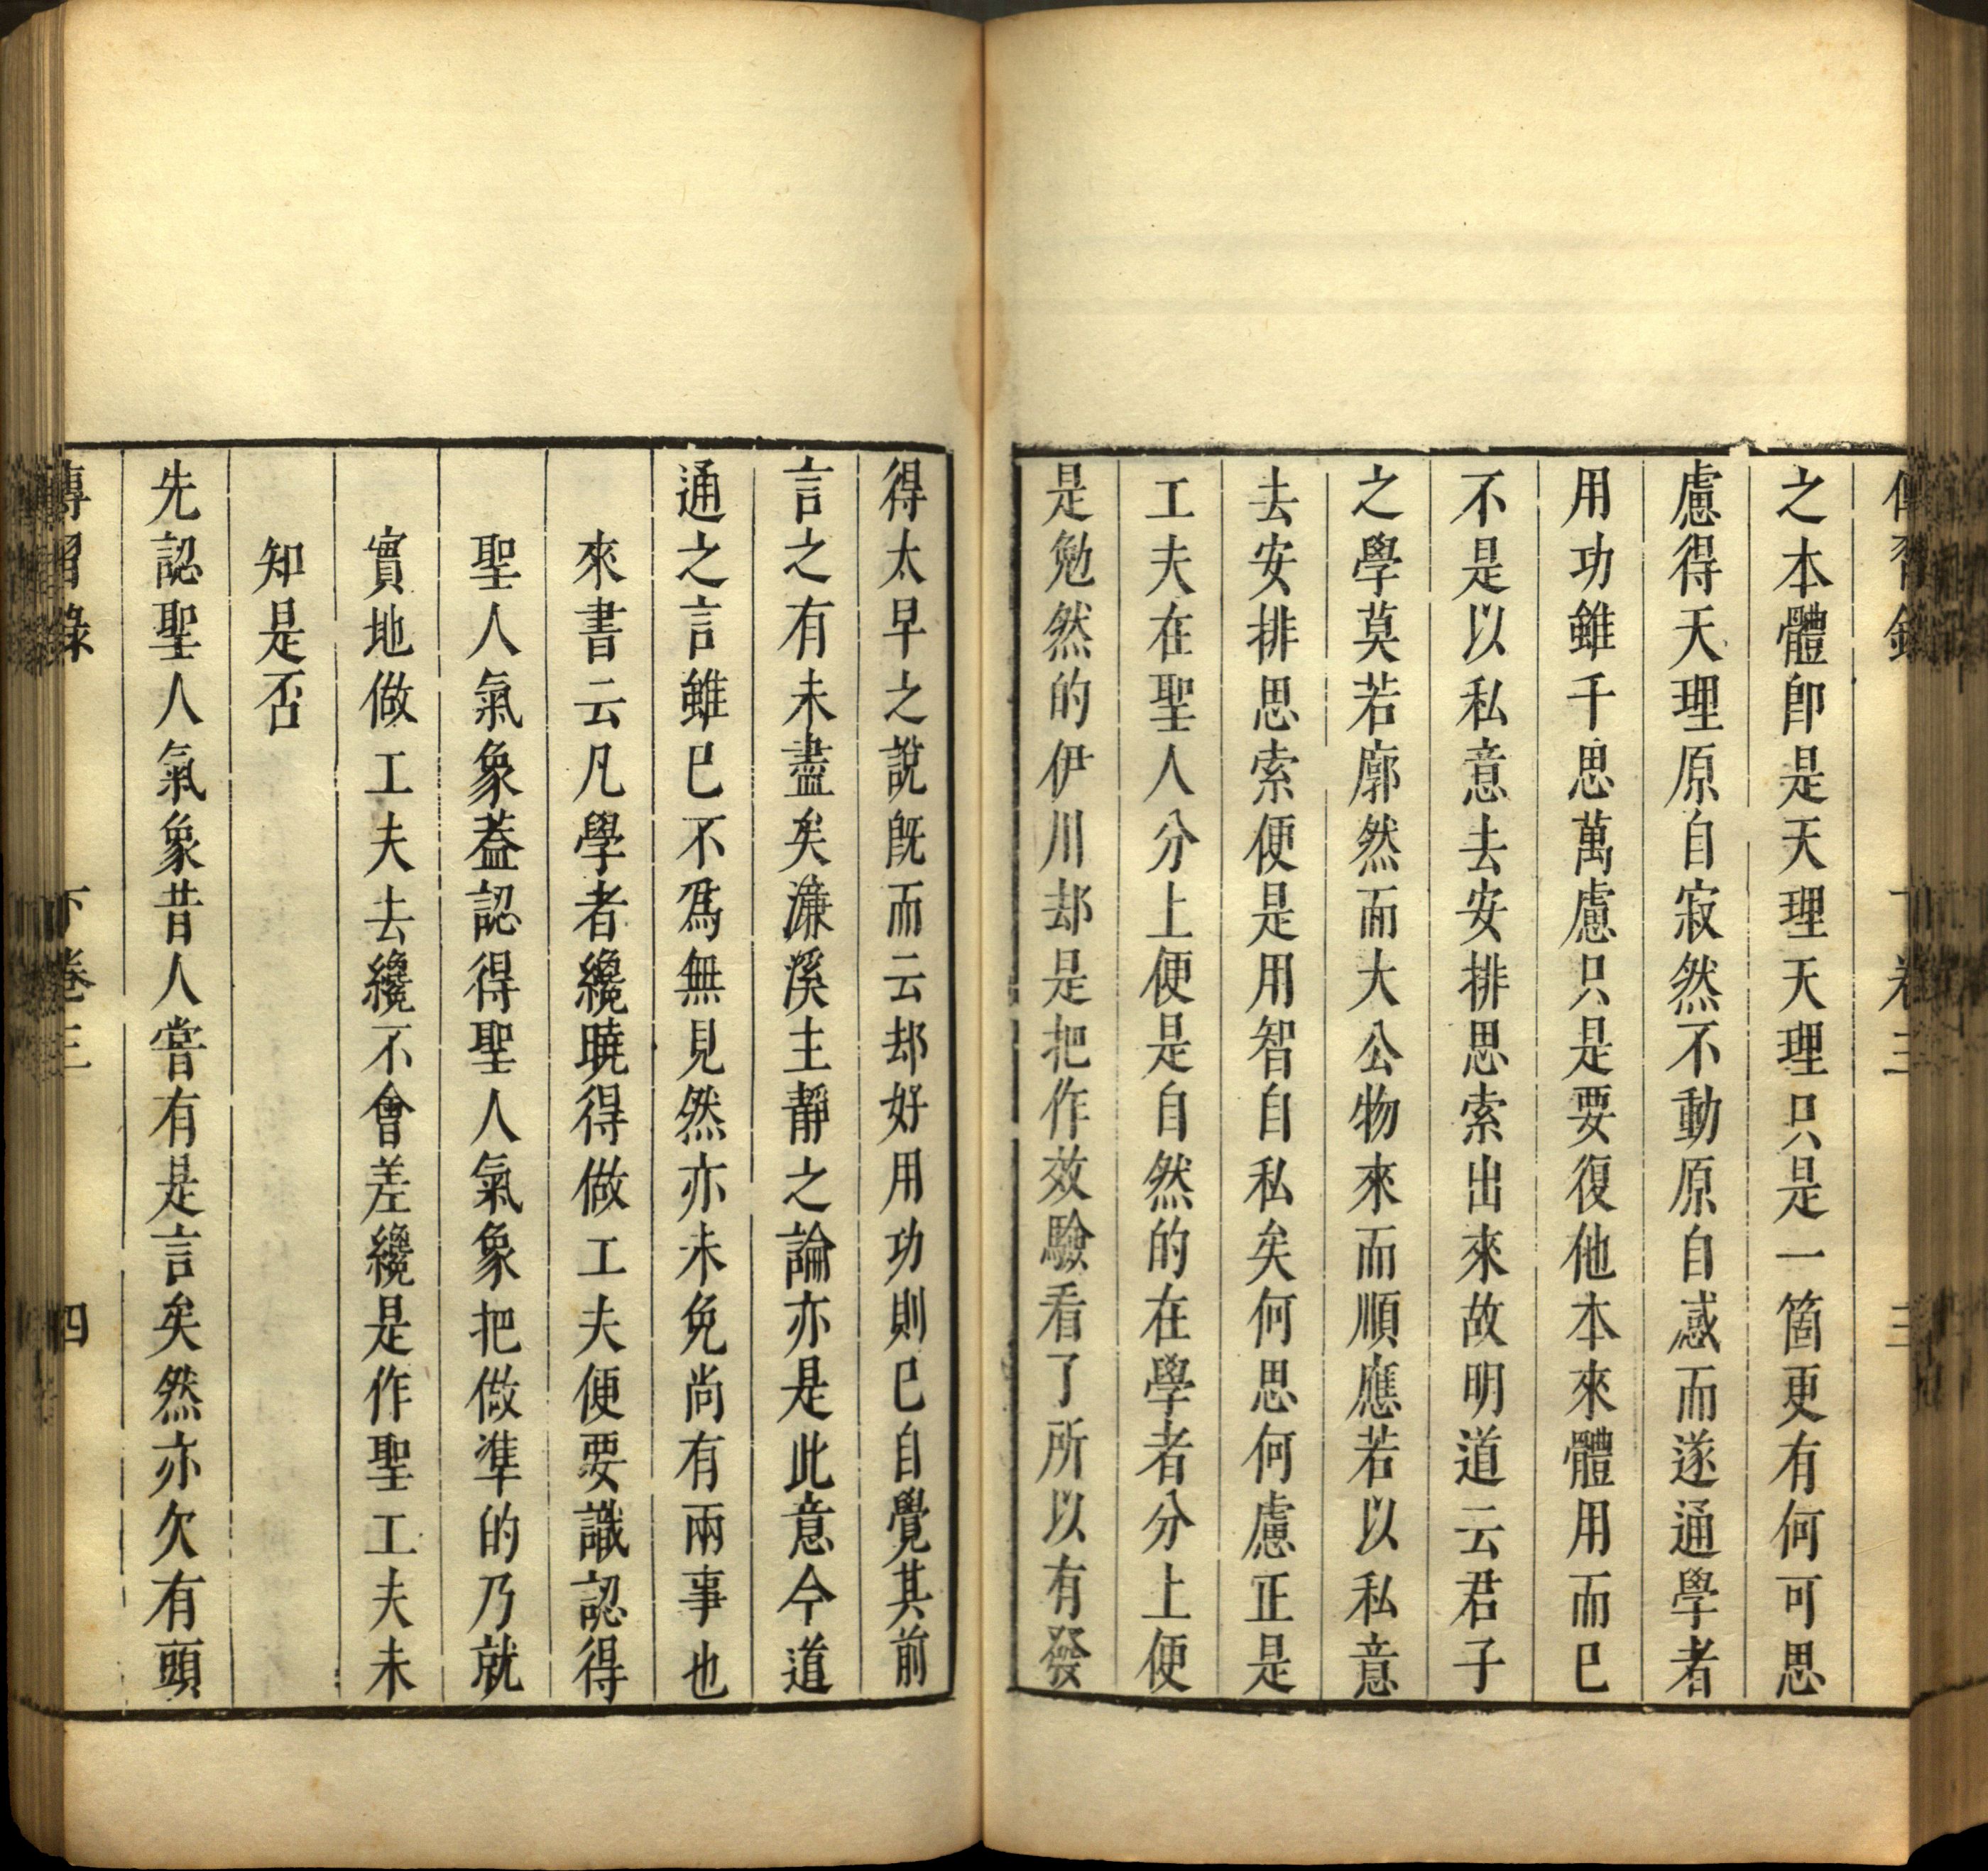 傳習錄 下卷三 三
之本體卽是天理天理只是一箇更有何可思
慮得天理原自寂然不動原自感而遂通學者
用功雖千思萬慮只是要復他本來體用而已
不是以私意去安排思索出來故明道云君子
之學莫若廓然而大公物來而順應若以私意
去安排思索便是用智自私矣何思何慮正是
工夫在聖人分上便是自然的在學者分上便
是勉然的伊川却是把作效驗看了所以有發
得太早之說旣而云却好用功則已自覺其前
言之有未盡矣濂溪主靜之論亦是此意今道
通之言雖已不爲無見然亦未免尚有兩事也
來書云凡學者纔曉得做工夫便要識認得
聖人氣象葢認得聖人氣象把做準的乃就
實地做工夫去纔不會差纔是作聖工夫未
知是否
先認聖人氣象昔人嘗有是言矣然亦欠有頭
傳習錄 下卷三 四